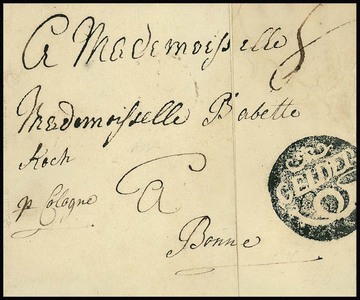 A Mademoiselle
Mademoiselle Babette
Koch
p Cologne
A
Bonne